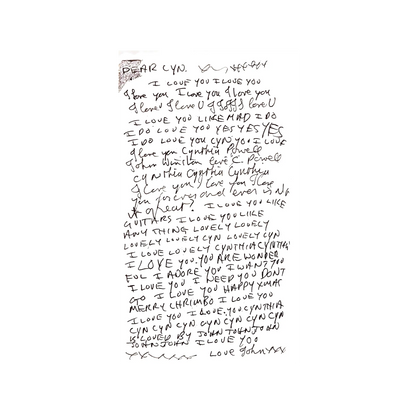 DEAR CYN.
I LOVE YOU I LOVE YOU
I love you I love you I love you
I love I love U I love U
I LOVE YOU LIKE MAD I DO
I DO LOVE YOU YES YES YES
I DO LOVE YOU CYN YOU I LOVE
I love you Cynthia Powell
John Winston C. Powell
CYNTHIA Cynthia Cynthia
I love you I love you I love
you forever and ever is N't
it great? I LOVE YOU LIKE
GUITARS I LOVE YOU LIKE
ANY THING LOVELY LOVELY
LOVELY LOVELY CYN LOVELY CYN
I LOVE LOVELY CYNTHIA CYNTHIA
I LOVE YOU. YOU ARE WONDER
FUL I ADORE YOU I WANT YOU
I LOVE YOU I NEED YOU DONT
GO I LOVE YOU HAPPY XMAS
MERRY CHRIMBO I LOVE YOU
I LOVE YOU I LOVE YOU CYNTHIA
CYN CYN CYN CYN CYN CYN CYN
IS LOVED BY JOHN JOHN JOHN
JOHN JOHN I LOVE YOU
LOVE John